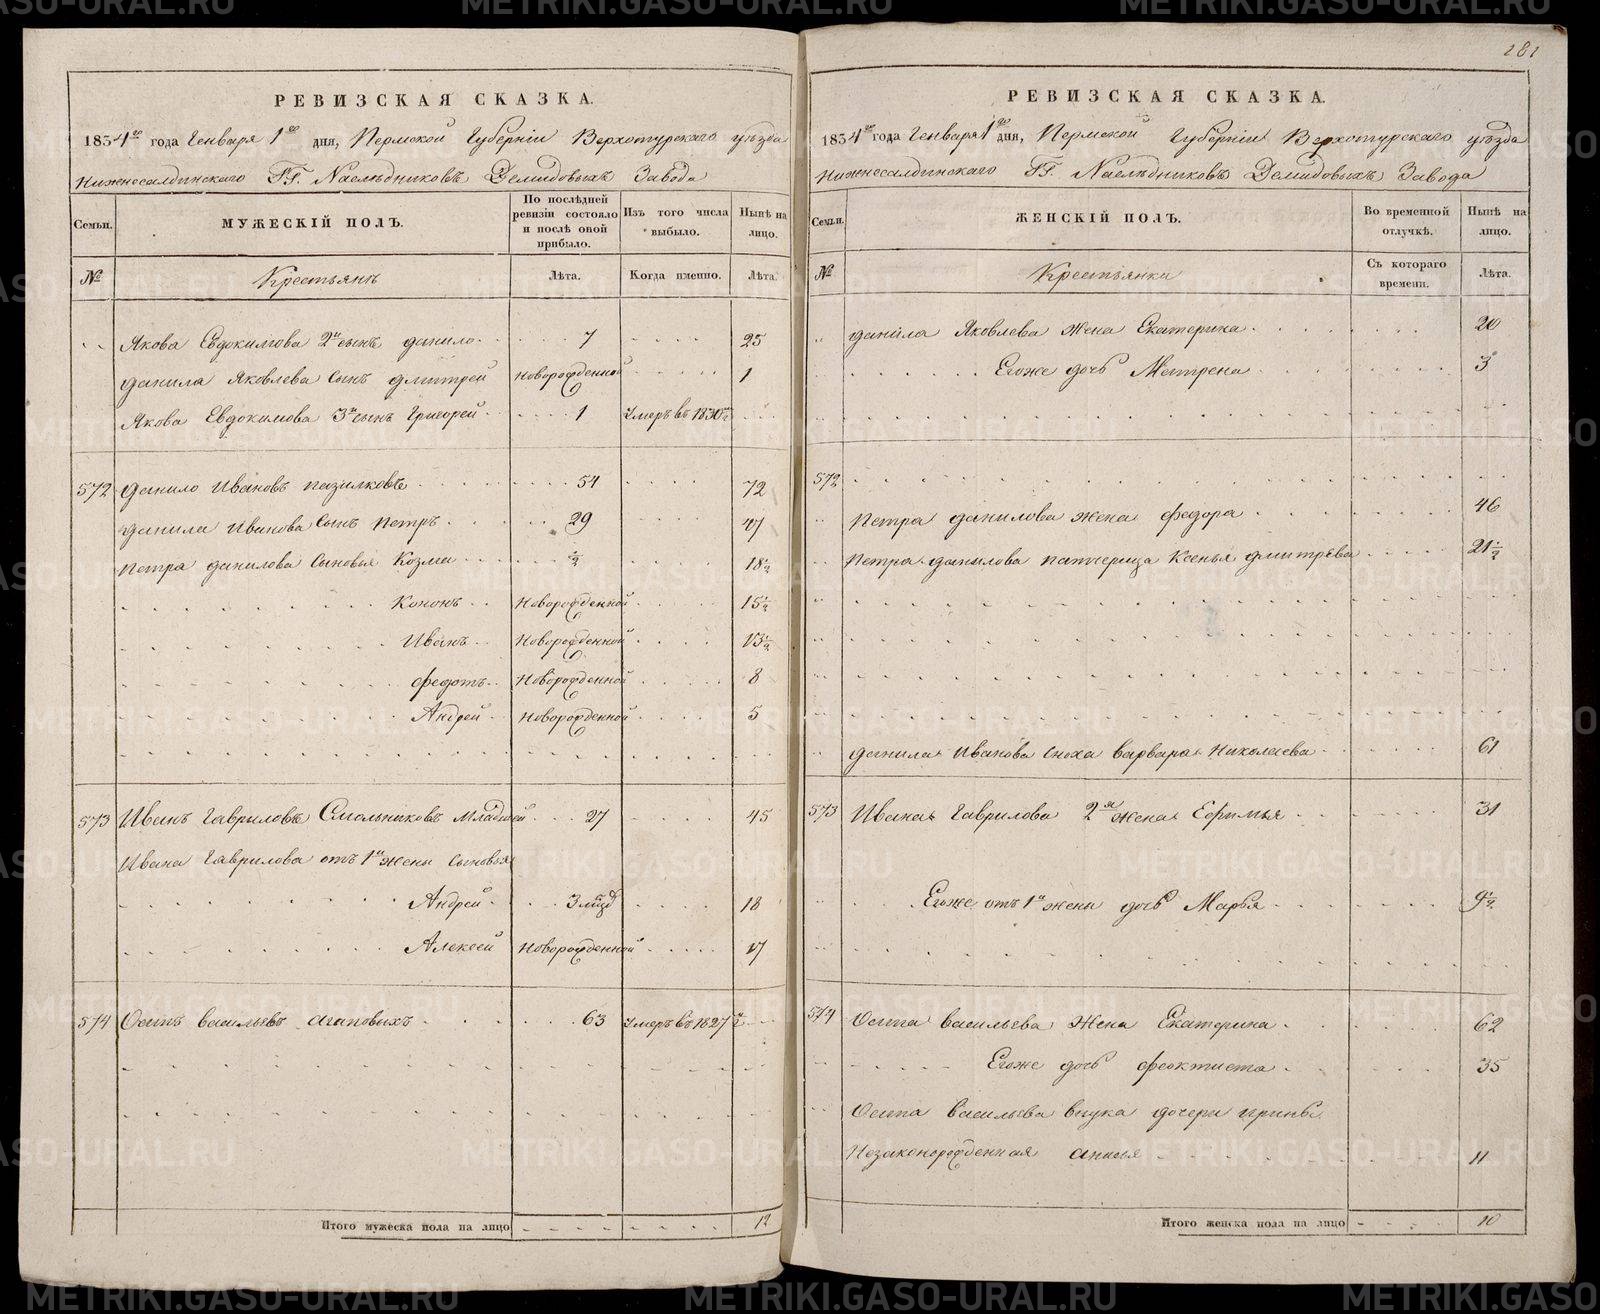 РЕВИЗСКАЯ СКАЗКА.
1834го года Генваря 1го дня, Пермской Губерніи Верхотурскаго уѣзда
Нижнесалдинскаго ГГ. Наслѣдниковъ Демидовыхъ Завода
Семьи. МУЖЕСКІЙ ПОЛЪ. По послѣдней ревизіи состояло и послѣ оной прибыло. Изъ того числа выбыло. Нынѣ на лицо.
№ Крестьянъ Лѣта. Когда именно. Лѣта.
Якова Евдокимова 2й сынъ Данило 7 25
Данила Яковлева Сынъ Дмитрей Новорожденной 1
Якова Евдокимова 3й сынъ Григорей 1 Умеръ въ 1830м
572 Данило Ивановъ 54 72
Данила Иванова Сынъ Петръ 29 47
Петра Данилова Сыновья Козма ½ 18½
Кононъ Новорожденной 15½
Иванъ Новорожденной 13½
Федотъ Новорожденной 8
Андрей Новорожденной 5
573 Иванъ Гавриловъ Смольниковъ Младшей 27 45
Ивана Гаврилова отъ 1й жены сыновья
Андрей 18
Алексей Новорожденной 17
574 Осипъ Васильевъ Агаповыхъ 63 Умеръ въ 1827
Итого мужеска пола на лицо 12
281
РЕВИЗСКАЯ СКАЗКА.
1834го года Генваря 1го дня, Пермской Губерніи Верхотурскаго уѣзда
Нижнесалдинскаго ГГ. Наслѣдниковъ Демидовыхъ Завода
Семьи. ЖЕНСКІЙ ПОЛЪ. Во временной отлучкѣ. Нынѣ на лицо.
№ Крестьянки Съ котораго времени. Лѣта.
Данила Яковлева Жена Екатерина 20
Егоже дочь Матрена 3
572
Петра Данилова жена Федора 46
Петра Данилова патчерица Ксенья Дмитрева 21½
Данила Иванова Сноха Варвара Николаева 61
573 Ивана Гаврилова 2я жена Ефимья 31
Егоже отъ 1й жены дочь Марья 9½
574 Осипа Васильева Жена Екатерина 62
Егоже дочь Феоктиста 35
Осипа Васильева внука дочери
Незаконорожденная Анисья 11
Итого женска пола на лицо 10
METRIKI.GASO-URAL.RU